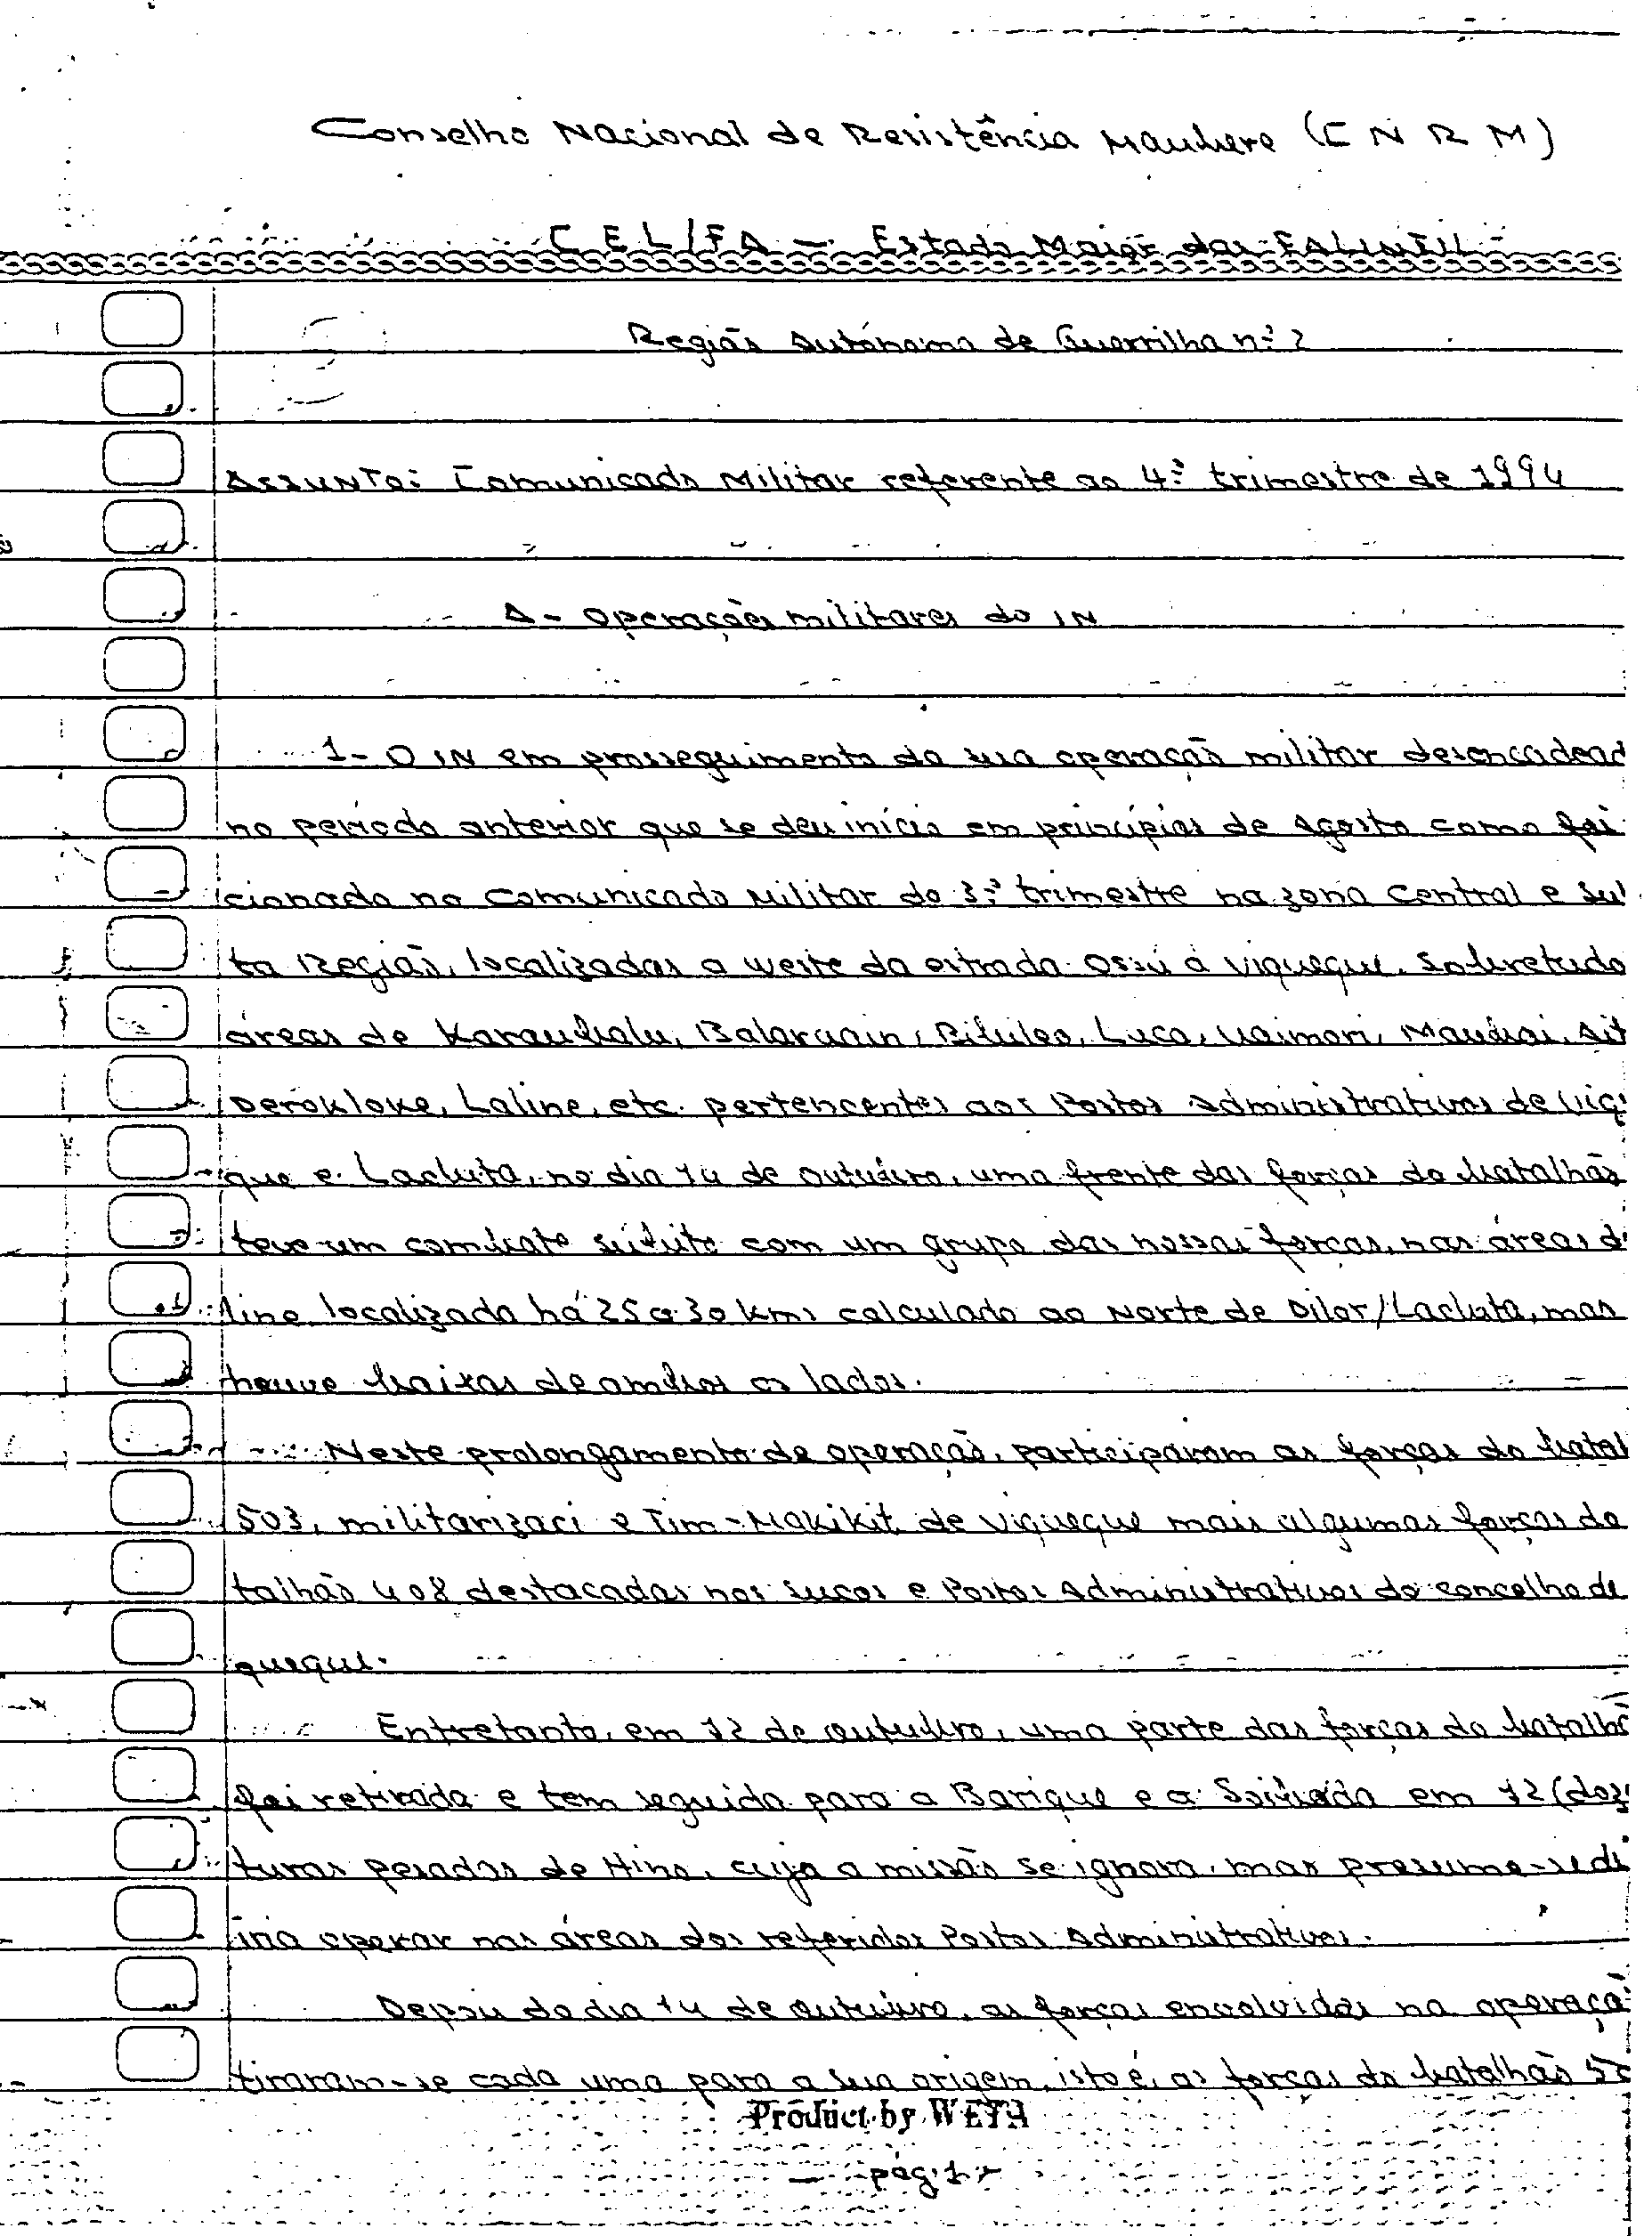 Conselho Nacional de Resistência Maubere (C N R M)
C E L / F A - Estado Maior das FALINTIL
Região Autónoma de Guerrilha nº 2
Assunto: Comunicado Militar referente ao 4º trimestre de 1994
A - Operações militares do IN
1 - O IN em prosseguimento da sua operação militar desencadead
no período anterior que se deu início em princípios de Agosto como foi
cionado no Comunicado Militar do 3º trimestre na zona Central e Sul
ta Região, localizadas a weste da estrada Ossú à Viqueque. Sobretudo
áreas de Karaubalu, Balaruain, Bibileo, Luca, Uaimori, Maubai,
Derokloke, Laline, etc. pertencentes aos Postos Administrativos de Viq
que e Lacluta, no dia 14 de Outubro, uma frente das forças do batalhão
teve um combate súbito com um grupo das nossas forças, nas áreas d
line localizada há 25 a 30 kms calculado ao Norte de Dilor/Lacluta, mas
houve baixas de ambos os lados.
Neste prolongamento de operação, participaram as forças do batal
503, militarizaci e Tim-Makikit de Viqueque mais algumas forças do
talhão 408 destacadas nos sucos e Postos Administrativos do concelho de
queque.
Entretanto, em 12 de outubro, uma parte das forças do batalhã
foi retirada e tem seguida para a Barique e a Soibada em 12 (doz
turas pesadas de Hino, cuja a missão se ignora, mas presume-se di
iria operar nas áreas dos referidos Postos Administrativos.
Depois do dia 14 de outubro, as forças envolvidas na operaçã
tiraram-se cada uma para a sua origem, isto é, as forças do batalhão 50
Product by WETH
- pág. 1 -